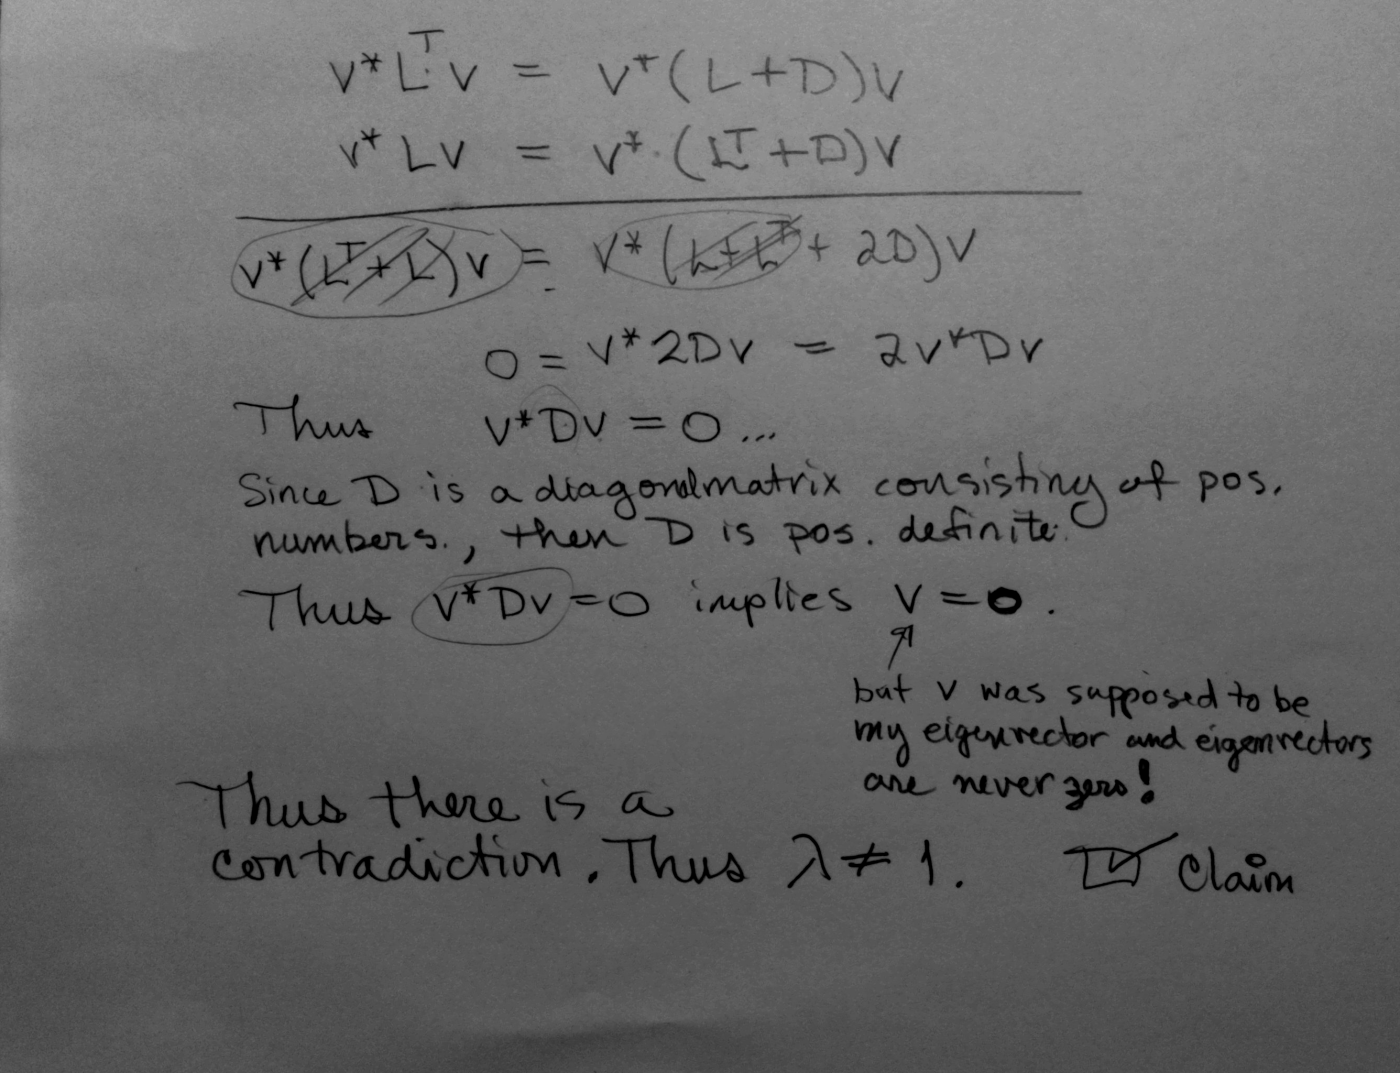 v* L^T v = v*(L+D)v
v* Lv = v*·(L^T+D)v
v*(L^T+L)v = v*(L+L^T + 2D)v
0 = v*2Dv = 2v*Dv
Thus v*Dv = 0 ...
Since D is a diagonal matrix consisting of pos.
numbers., then D is pos. definite.
Thus v*Dv=0 implies v=0.
but v was supposed to be
my eigenvector and eigenvectors
are never zero!
Thus there is a
contradiction. Thus λ≠1. ☑ Claim